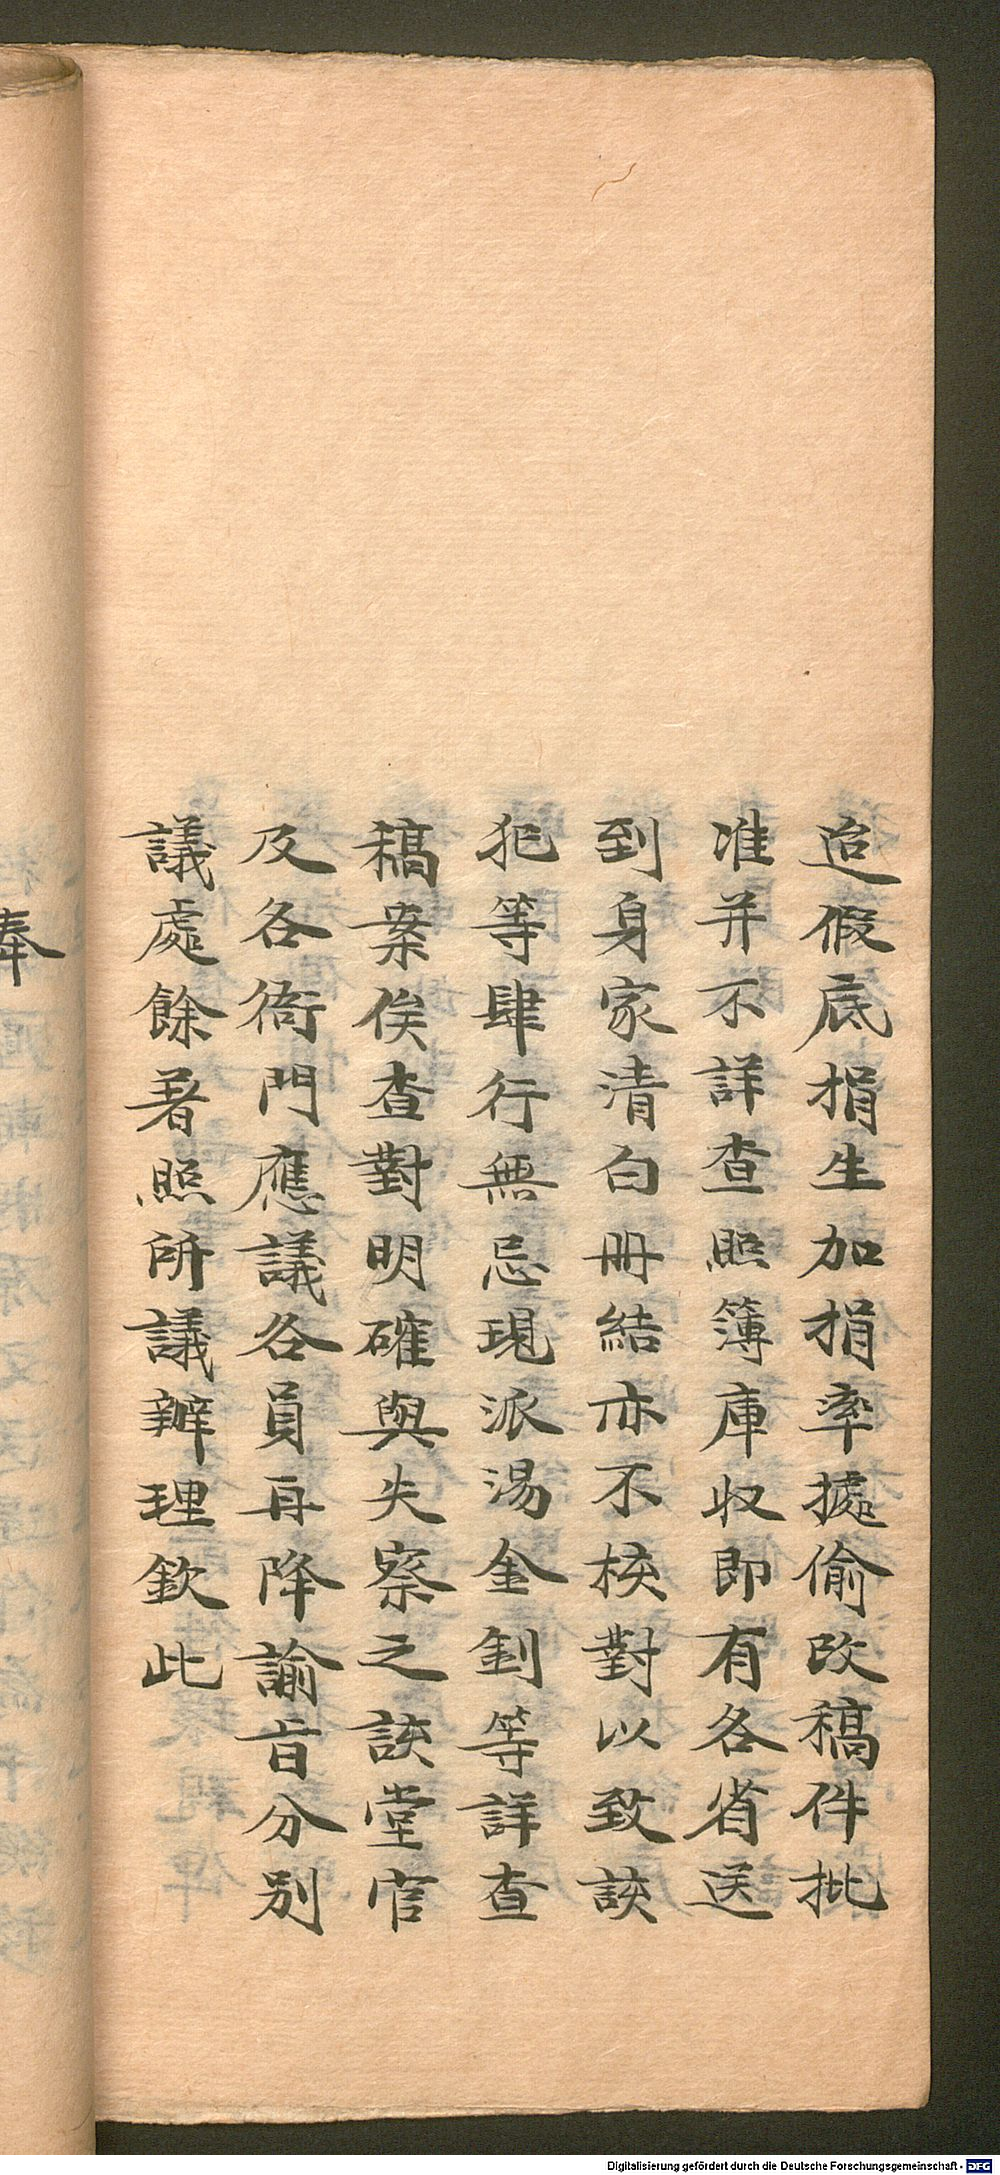 迨假底捐生加捐率據偷改稿件批
准并不詳查照簿庫收即有各省送
到身家清白冊結亦不核對以致該
犯等肆行無忌現派湯金釗等詳查
稿案俟查對明確與失察之該堂官
及各衙門應議各員再降諭旨分別
議處餘著照所議辦理欽此
奉
Digitalisierung gefördert durch die Deutsche Forschungsgemeinschaft - DFG